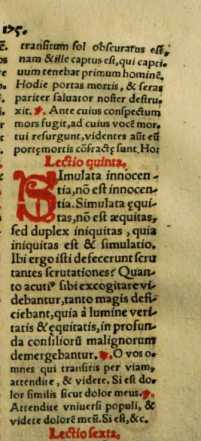 175.
transitum sol obscuratus est,
nam & ille captus est, qui capti-
uum tenebat primum hominē.
Hodie portas mortis, & seras
pariter saluator noster destru-
xit. ℣. Ante cuius conspectum
mors fugit, ad cuius vocē mor-
tui resurgunt, videntes aūt eū
portę mortis cōfractę sunt. Hor
Lectio quinta.
SImulata innocen-
tia, nō est innocen-
tia. Simulata ęqui-
tas, nō est æquitas,
sed duplex iniquitas, quia
iniquitas est & simulatio.
Ibi ergo isti defecerunt scru
tantes scrutationes? Quan-
to acuti⁹ sibi excogitare vi-
debantur, tanto magis defi-
ciebant, quia à lumine veri-
tatis & ęquitatis, in profun-
da consiliorū malignorum
demergebantur. ℟. O vos o-
mnes qui transitis per viam,
attendite, & videte. Si est do-
lor similis sicut dolor meus. ℣.
Attendite vniuersi populi, &
videte dolorē meū. Si est, &c.
Lectio sexta.